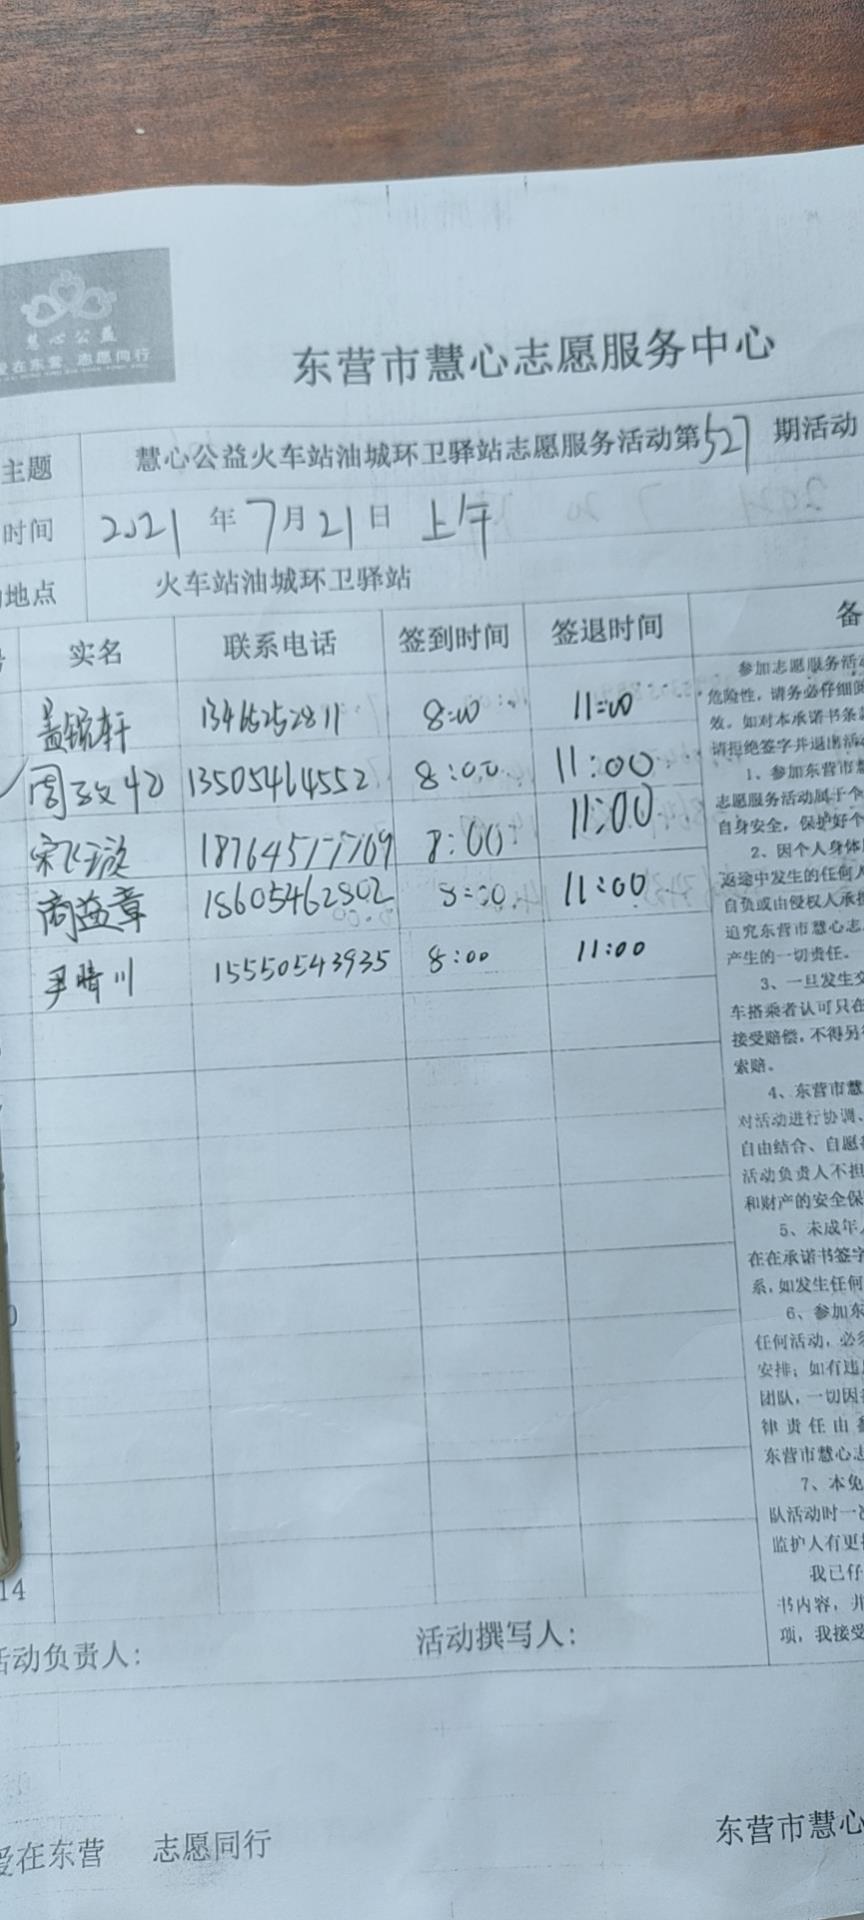 慧心公益
爱在东营 志愿同行
东营市慧心志愿服务中心
主题 慧心公益火车站油城环卫驿站志愿服务活动第527期活动
时间 2021年7月21日 上午
地点 火车站油城环卫驿站
实名 联系电话 签到时间 签退时间 备
8:00 11:00
13505464552 8:00 11:00
8:00 11:00
商益章 18605462802 8:00 11:00
尹晴川 15550543935 8:00 11:00
14
活动负责人: 活动撰写人:
参加志愿服务活
危险性，请务必仔细
效。如对本承诺书条
请拒绝签字并退出活
1、参加东营市
志愿服务活动属于个
自身安全，保护好个
2、因个人身体
返途中发生的任何人
自负或由侵权人承
追究东营市慧心志
产生的一切责任。
3、一旦发生交
车搭乘者认可只在
接受赔偿，不得另
索赔。
4、东营市慧
对活动进行协调、
自由结合、自愿
活动负责人不担
和财产的安全保
5、未成年
在在承诺书签字
系，如发生任何
6、参加东
任何活动，必须
安排；如有违
团队，一切因
律责任由
东营市慧心志
7、本免
队活动时一
监护人有更
我已仔
书内容，并
项，我接受
爱在东营 志愿同行
东营市慧心